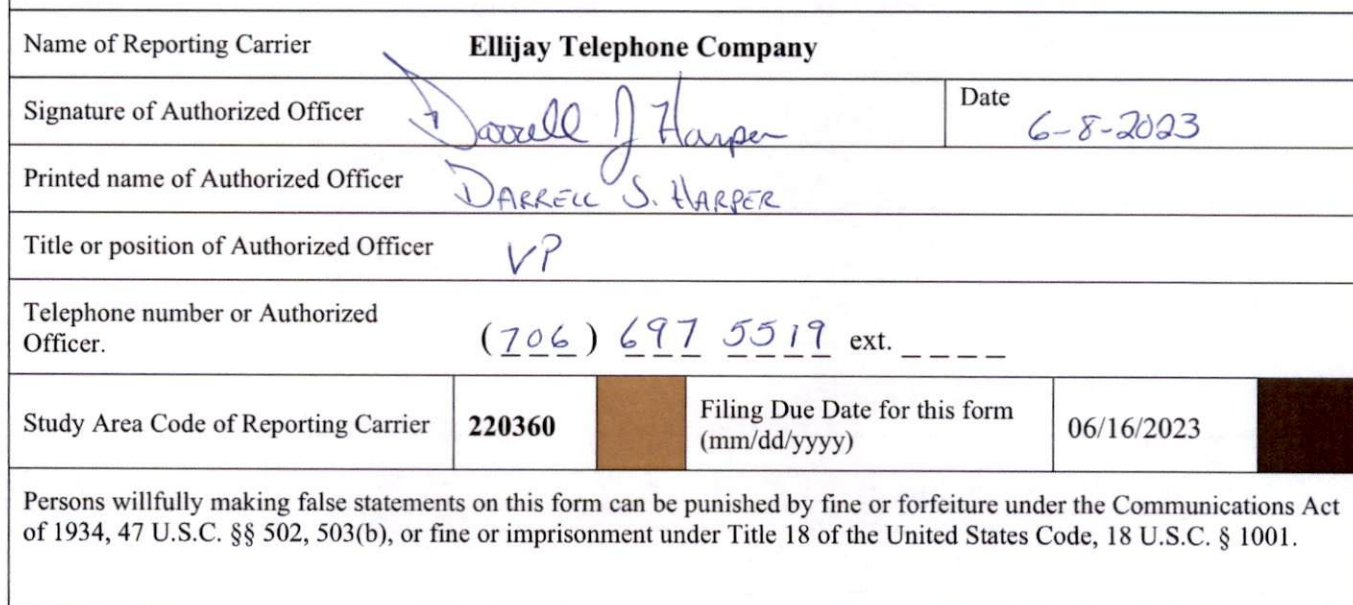 Name of Reporting Carrier Ellijay Telephone Company
Signature of Authorized Officer Darrell J Harper Date
6-8-2023
Printed name of Authorized Officer DARRELL S. HARPER
Title or position of Authorized Officer VP
Telephone number or Authorized
Officer. (706) 697 5519 ext. _ _ _ _
Study Area Code of Reporting Carrier 220360 Filing Due Date for this form
(mm/dd/yyyy) 06/16/2023
Persons willfully making false statements on this form can be punished by fine or forfeiture under the Communications Act
of 1934, 47 U.S.C. §§ 502, 503(b), or fine or imprisonment under Title 18 of the United States Code, 18 U.S.C. § 1001.